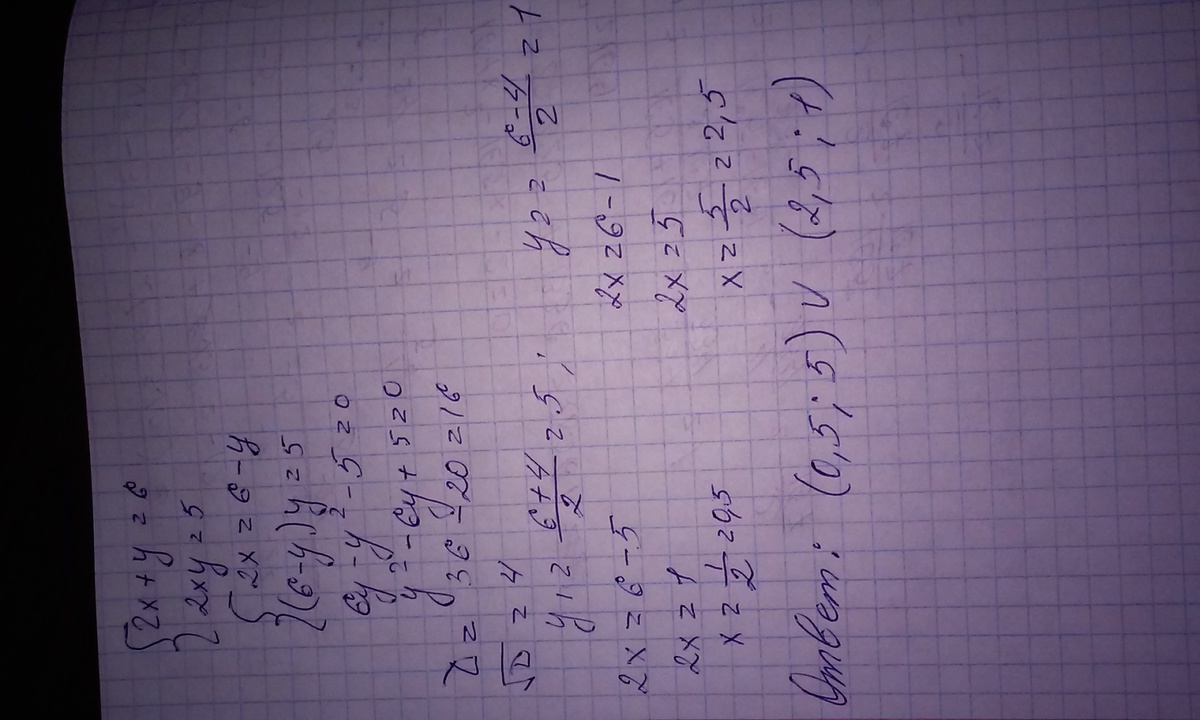 {2x + y = 6
2xy = 5
{2x = 6 - y
(6 - y) y = 5
6y - y² - 5 = 0
y² - 6y + 5 = 0
D = 36 - 20 = 16
√D = 4
y₁ = (6 + 4)/2 = 5 ; y₂ = (6 - 4)/2 = 1
2x = 6 - 5 2x = 6 - 1
2x = 1 2x = 5
x = 1/2 = 0,5 x = 5/2 = 2,5
Ответ: (0,5 ; 5) ∨ (2,5 ; 1)